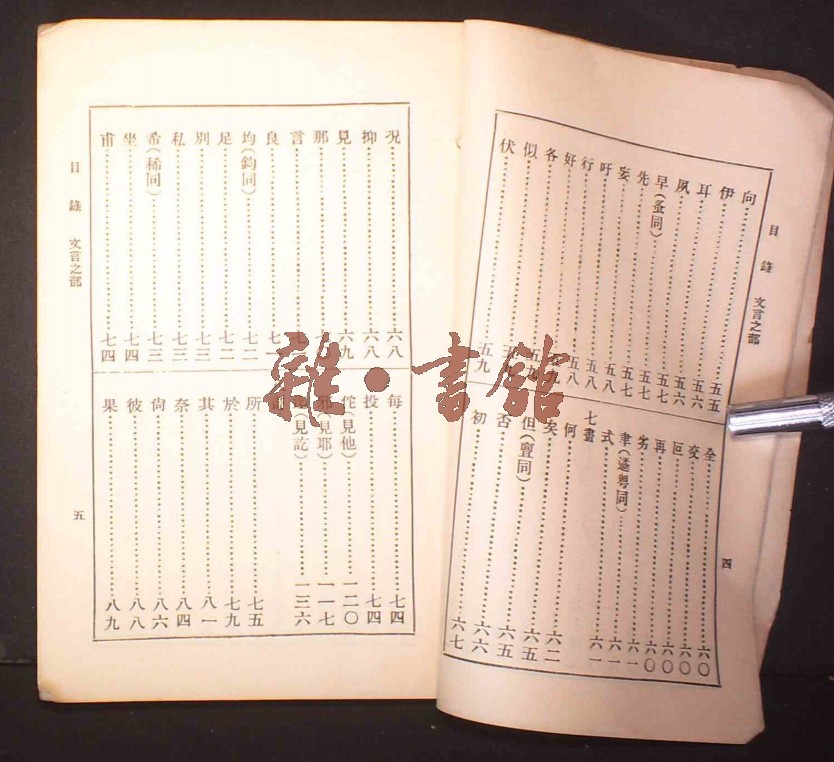 目錄 文言之部
四
向 五五
伊 五五
耳 五六
夙 五六
早(蚤同) 五七
先 五七
妄 五七
吁 五八
行 五八
好 五八
各 五九
似 五九
伏 五九
全 六〇
交 六〇
叵 六〇
再 六〇
劣 六一
聿(遹粵同) 六一
式 六一
七畫
何 六一
矣 六二
但(亶同) 六五
否 六五
初 六六
六七
目錄 文言之部
五
況 六八
抑 六八
見 六九
那
言 七
良 七一
均(鈞同) 七二
足 七二
別 七三
私 七三
希(稀同) 七三
坐 七四
甫 七四
每 七四
投 七四
佗(見他) 一二〇
邪(見耶) 一一七
(見訖) 一三六
所 七五
於 七九
其 八一
奈 八四
尙 八六
彼 八八
果 八九
雜·書館